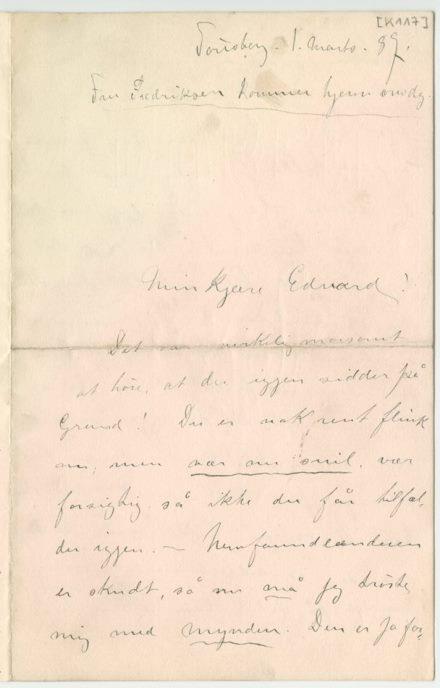 [K117]
Tönsberg. 1. marts. 89.
Fru Fredriksen kommer hjem onsdg.
Min Kjære Edvard!
Det var virkelig morsomt
at höre, at du igjen sidder på
Grand! Du er nok rent flink
nu, men vær nu snil, vær
forsigtig så ikke du får tilfæl-
der igjen. – Newfoundlænderen
er skudt, så nu må jeg tröste
mig med mynden. Den er jo for-